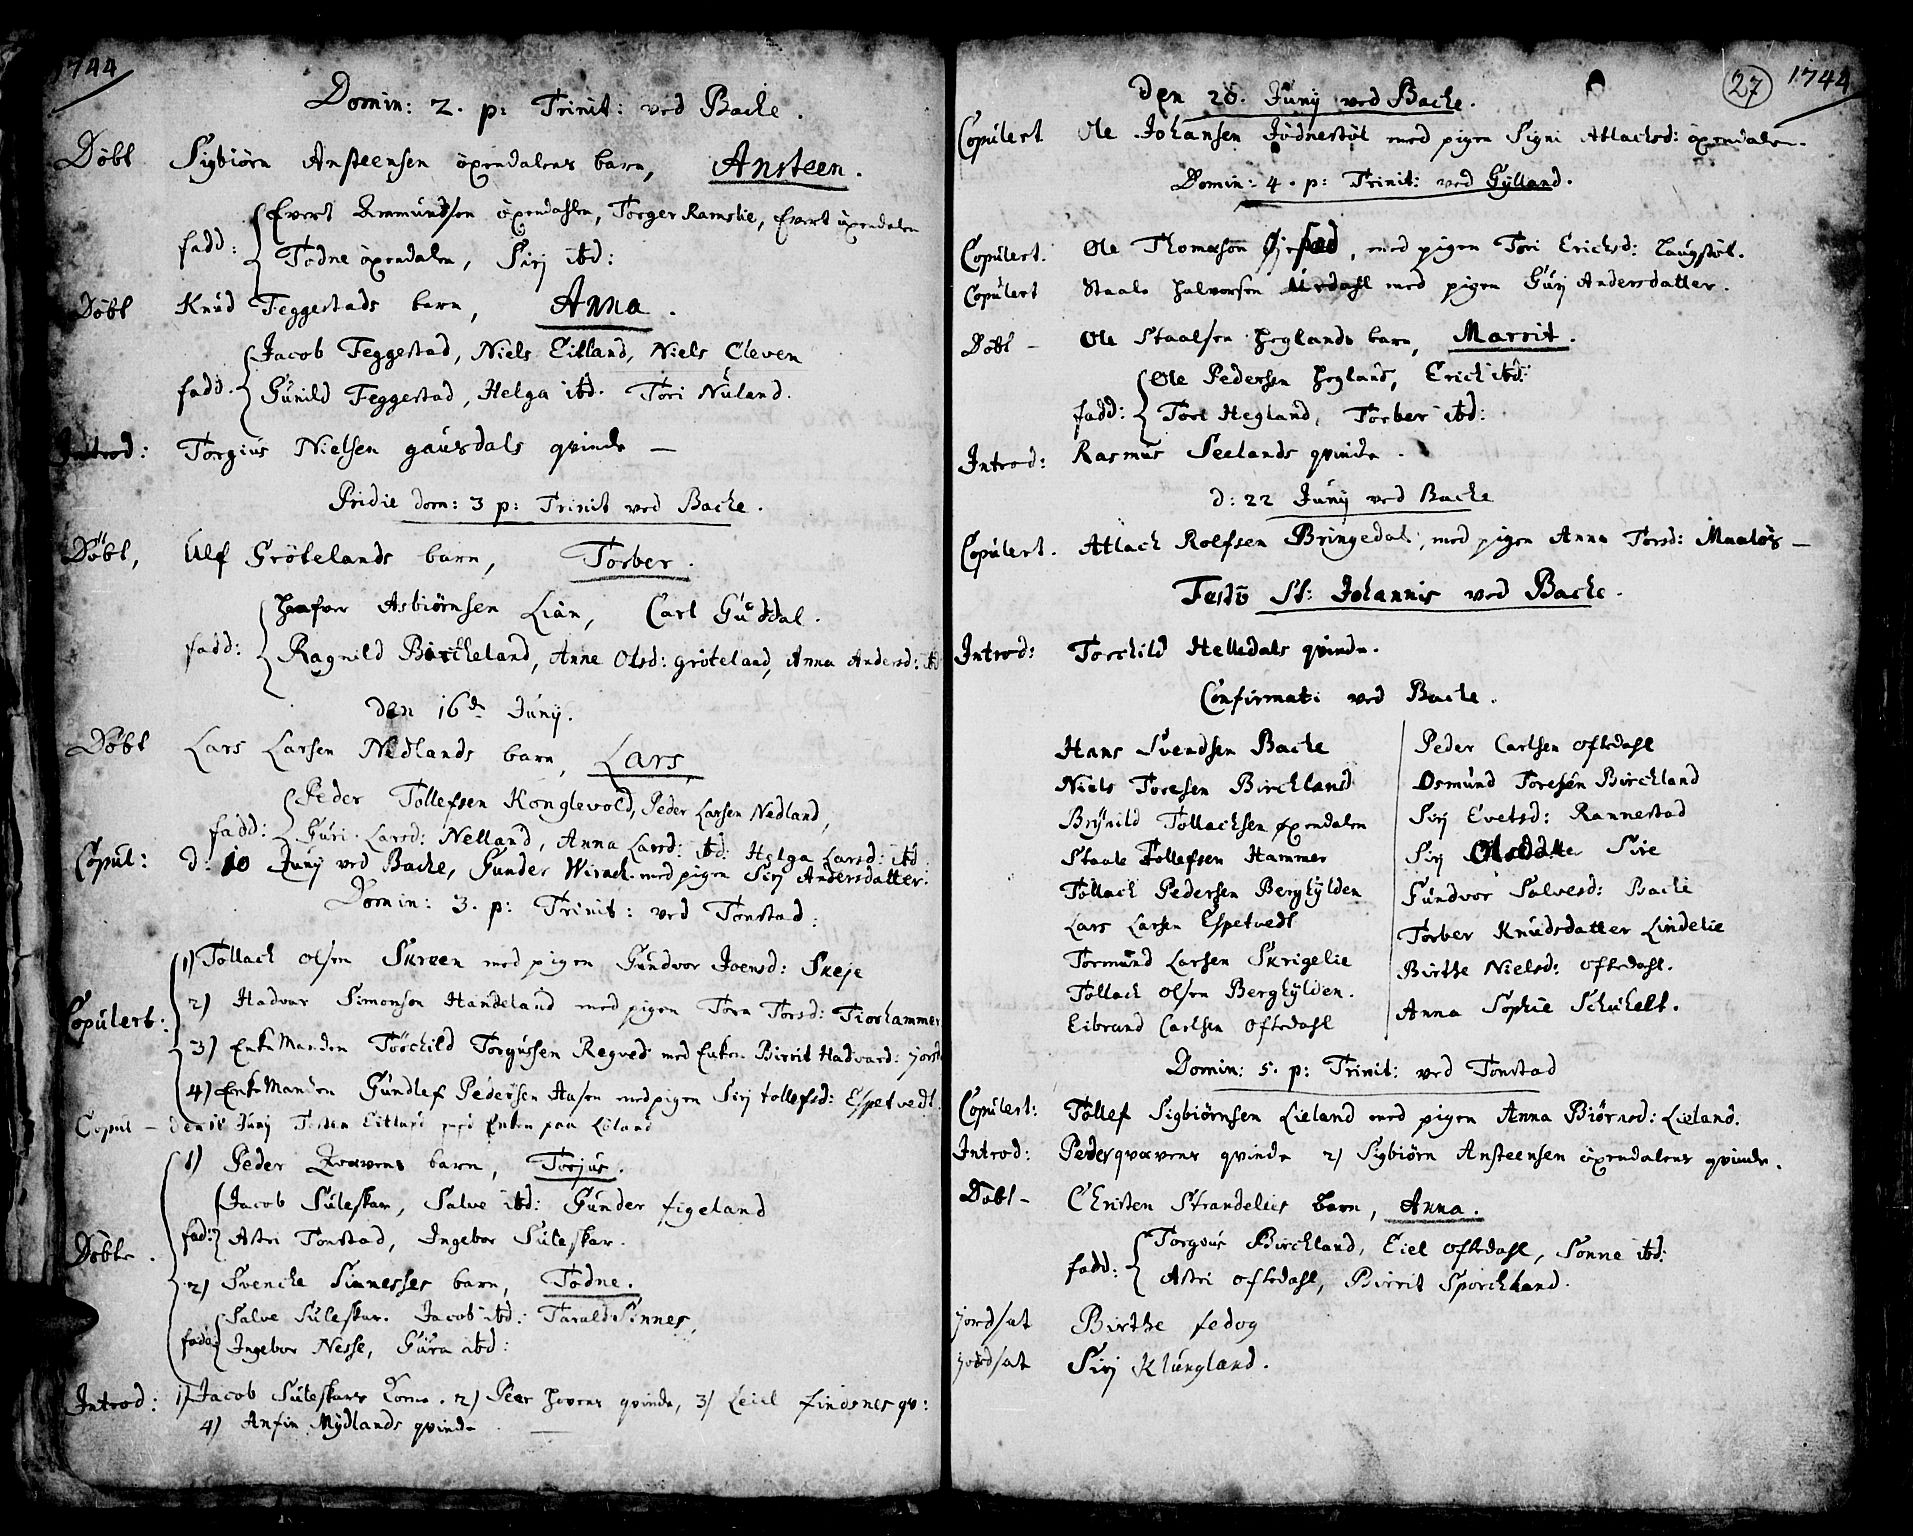 1744
Domin: 2. p: Trinit: ved Backe.
Döbt Sigbiörn Ansteensen öxendalens barn, Ansteen.
Evert Ammundsen öxendahlen, Torger Ramslie, Evert öxendalen
fadd: Todne öxendalen, Sirj ibd:
Döbt Knud Feggestads barn, Anna.
Jacob Feggestad, Niels Eitland, Niels Cleven
fadd. Gunild Feggestad, Helga ibd. Tori Nuland.
Introd: Torgius Nielsen gausdals qvinde —
Pridie dom: 3 p: Trinit ved Backe.
Döbt, Ulf Grötelands barn, Torber.
Asbiörnsen Lian, Carl Guddal.
fadd: Ragnild Birckeland, Anne Olsd: gröteland, Anna Andersd: ibd
den 16de Junij.
Döbt Lars Larsen Nedlands barn, Lars,
Peder Tollefsen Konglevold, Peder Larsen Nedland,
fadd: Guri Larsd: Nelland, Anna Larsd: ibd: Helga Larsd: ibd
Copul: d: 10 Junij ved Backe, Gunder med pigen Sirj Andersdatter.
Domin: 3. p: Trinit: ved Tonstad:
1) Tollack olsen Skreen med pigen Gundvor Joensd: Skeje
Copulert: 2) Hadvar Simonsen Handeland med pigen Torn Torsd: Tiorhammer
3) EnkeManden Torchild Torgussen Regved med Enken Birrit Hadvard:
4) EnkeManden Gundlef Pedersen Hasen med pigen Sirj tollefsd: Espetvedt.
Copul — den 18 Junij Torsten Eitland med Enken paa Löland
1) Peder Qvævens barn, Torjus.
Jacob Suleskar, Salve ibd: Gunder figeland
fad: Astri Tonstad, Ingebor Suleskar.
Döbte. 2) Svencke Sinnesses barn, Todne.
Salve Suleskar. Jacob ibd: Tarald Sinnes,
fadd: Ingebor Nesse, Gura ibd:
Introd: 1) Jacob Suleskars Kone. 2) Peer hovens qvinde, 3) Leiel findsnes qv:
4) Anfin Mydlands qvinde
27 1744
Den 20. Junij ved Backe.
Copulert Ole Johansen Jödnestöl med pigen Signi Atlacksd: öxendalen.
Domin: 4. p: Trinit: ved Gylland.
Copulert. Ole Thomæson, med pigen Tori Ericksd: Laugstöl.
Copulert Staale Halvorsen Urdahl med pigen Gurj Andersdatter.
Döbt — Ole Staalsen heglands barn, Marrit.
Ole Pedersen hegland, Erich ibd:
fadd: Tore Hegland, Torber ibd:
Introd: Rasmus Seelands qvinde.
d: 22 Junij ved Backe
Copulert. Atlack Rolfsen Bringedal, med pigen Anna Torsd: Maaløs —
Festo St: Johannis ved Backe.
Introd: Torchild Helledals qvinde.
Confirmati ved Backe.
Hans Svendsen Backe
Niels Toresen Birckland
Brynild Tollacksen öxendalen
Staale Tollefsen Hammer
Tollack Pedersen Berghylden
Lars Larsen Espetvedt
Tormund Larsen Skrigelie
Tollack olsen Berghylden.
Eibrand Carlsen oftedahl
Peder Carlsen oftedahl
Osmund Toresen Birckland
Sirj Evetsd: Rannestad
Sirj Olsdatter Sire
Gundvor Salvesd: Backe
Torber Knudsdatter Lindelie
Birthe Nielsd: oftedahl.
Anna Sophie Schuhelt.
Domin: 5. p: Trinit: ved Tonstad
Copulert: Tollef Sigbiörnsen Lieland med pigen Anna Biörnsd: Lieland.
Introd: Peder qvævens qvinde 2) Sigbiörn Ansteensen öxendalens qvinde.
Döbt — Christen Strandelies barn, Anna.
Torgius Birckland, Eiel oftedahl, Sonne ibd:
fadd: Astri oftedahl, Birrit Sporckland.
jordsat Birthe fedog
jordsat Sirj Klungland.